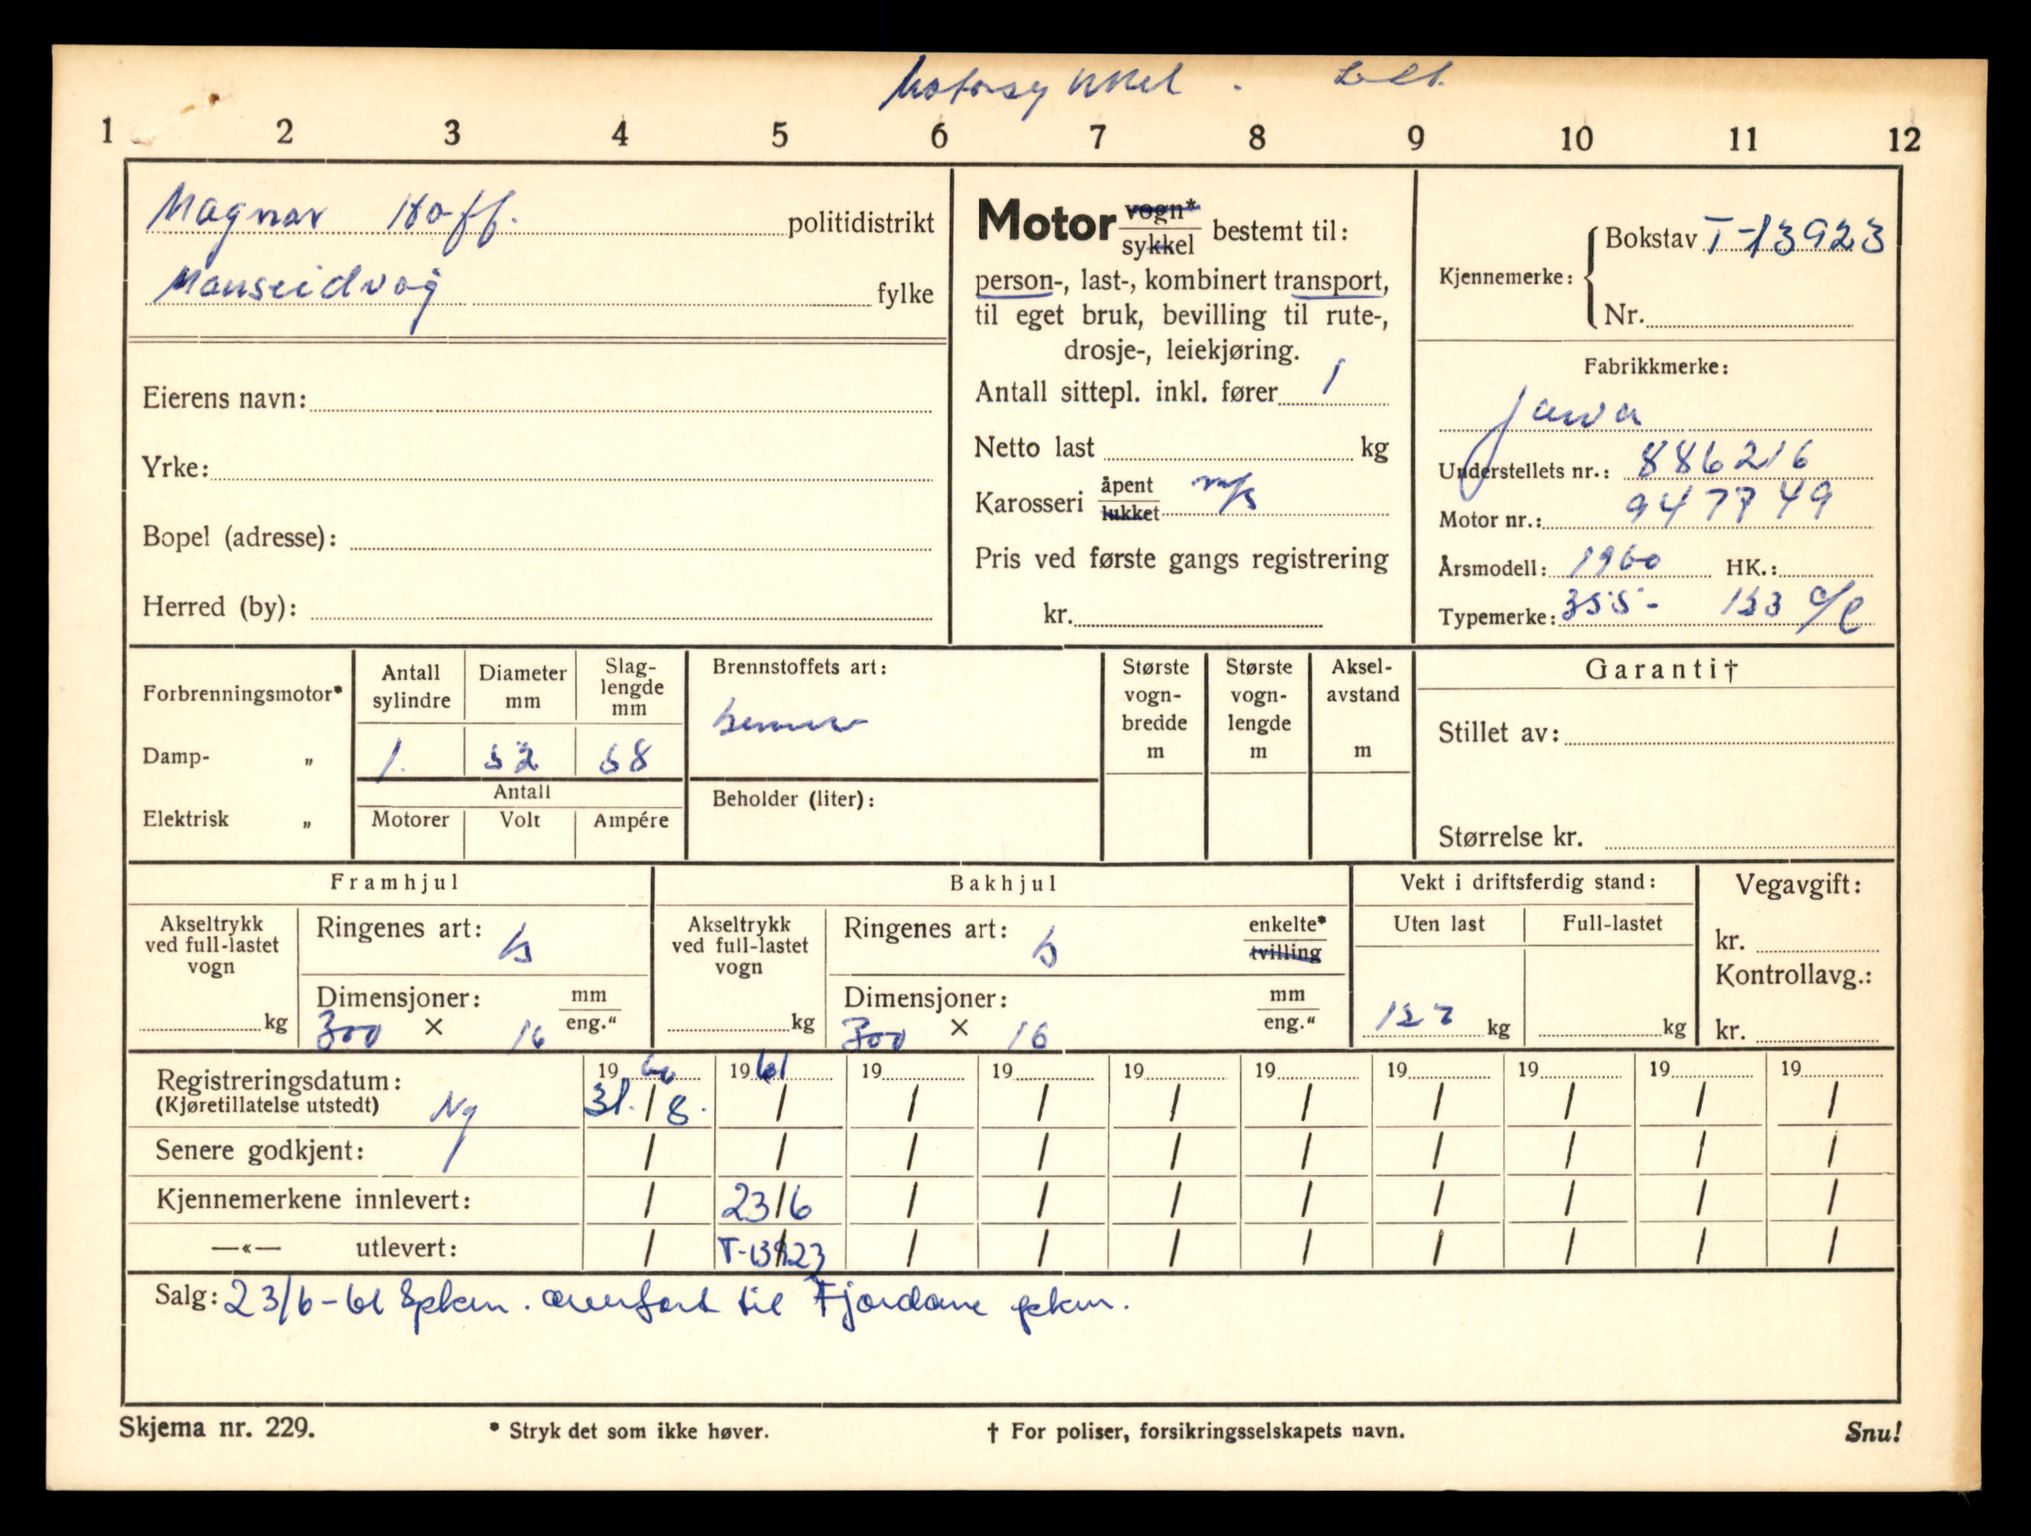 Motorsykkel. Lett.
1 2 3 4 5 6 7 8 9 10 11 12
Magnar Hoff. politidistrikt
Mauseidvåg fylke
Eierens navn:
Yrke:
Bopel (adresse):
Herred (by):
Motor vogn* sykkel bestemt til:
person-, last-, kombinert transport,
til eget bruk, bevilling til rute-,
drosje-, leiekjøring.
Antall sittepl. inkl. fører 1
Netto last kg
Karosseri åpent lukket m/s
Pris ved første gangs registrering
kr.
Kjennemerke: Bokstav T-13923
Nr.
Fabrikkmerke:
Jawa
Understellets nr.: 886216
Motor nr.: 947749
Årsmodell: 1960 HK.:
Typemerke: 355- 123 c/c
Forbrenningsmotor*
Damp- „
Elektrisk „
Antall sylindre
1.
Diameter mm
52
Slag-lengde mm
58
Antall
Motorer Volt Ampére
Brennstoffets art:
bensin
Beholder (liter):
Største vogn-bredde m
Største vogn-lengde m
Aksel-avstand m
Garanti†
Stillet av:
Størrelse kr.
Framhjul
Akseltrykk ved full-lastet vogn
kg
Ringenes art: b
Dimensjoner: mm eng."
300 × 16
Bakhjul
Akseltrykk ved full-lastet vogn
kg
Ringenes art: b enkelte* tvilling
Dimensjoner: mm eng."
300 × 16
Vekt i driftsferdig stand:
Uten last Full-lastet
127 kg kg
Vegavgift:
kr.
Kontrollavg.:
kr.
19 60 19 61 19 19 19 19 19 19 19 19
Registreringsdatum:
(Kjøretillatelse utstedt) Ny 31./8. / / / / / / / / /
Senere godkjent: / / / / / / / / / /
Kjennemerkene innlevert: / 23/6 / / / / / / / /
—«— utlevert: / T-13923 / / / / / / / /
Salg: 23/6-61 Spkm. overført til Fjordane pkm.
Skjema nr. 229.
* Stryk det som ikke høver.
† For poliser, forsikringsselskapets navn.
Snu!